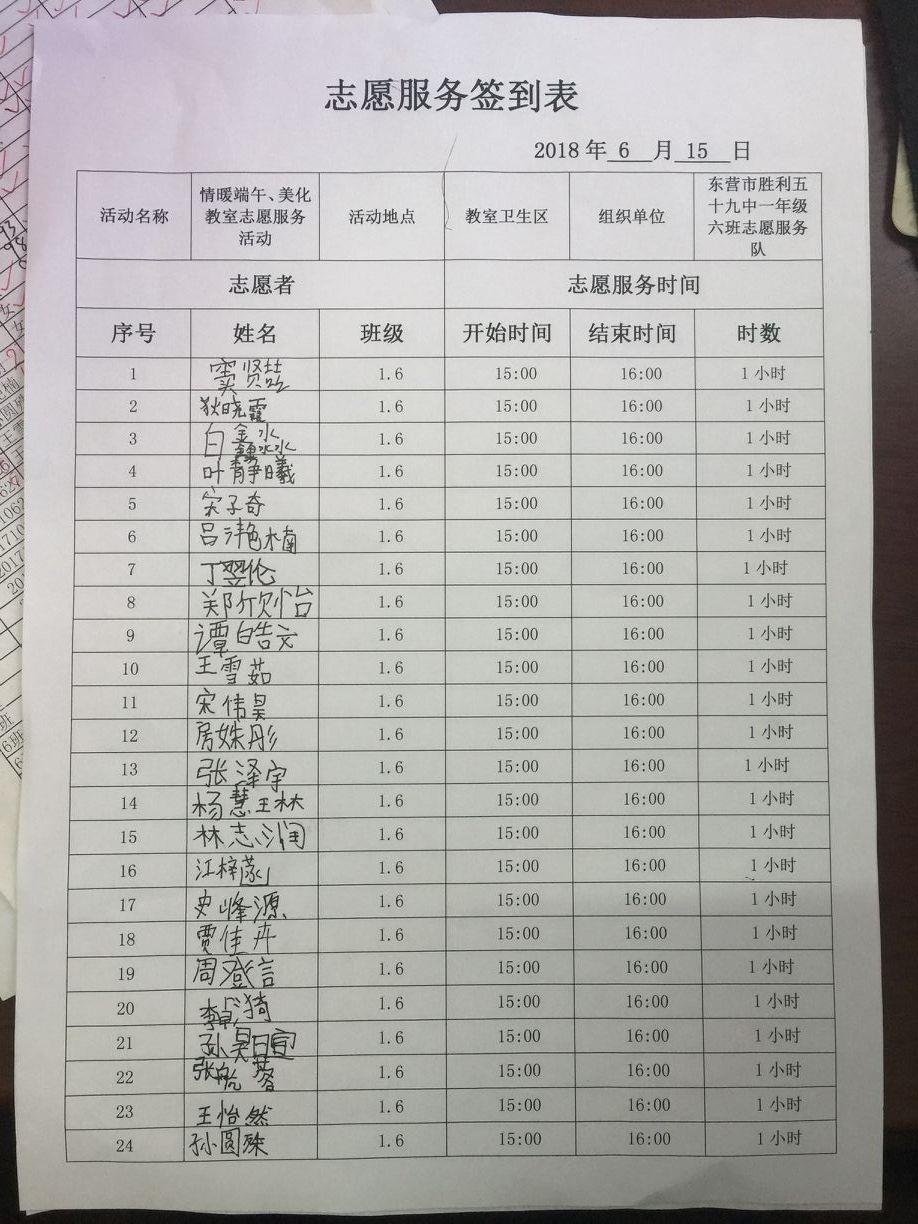 志愿服务签到表
2018 年 6 月 15 日
活动名称 情暖端午、美化教室志愿服务活动 活动地点 教室卫生区 组织单位 东营市胜利五十九中一年级六班志愿服务队
志愿者 志愿服务时间
序号 姓名 班级 开始时间 结束时间 时数
1 窦贤喆 1.6 15:00 16:00 1 小时
2 狄晓霞 1.6 15:00 16:00 1 小时
3 白鑫淼 1.6 15:00 16:00 1 小时
4 叶静曦 1.6 15:00 16:00 1 小时
5 宋子奇 1.6 15:00 16:00 1 小时
6 吕沣楠 1.6 15:00 16:00 1 小时
7 丁翌伦 1.6 15:00 16:00 1 小时
8 郑欣怡 1.6 15:00 16:00 1 小时
9 谭皓文 1.6 15:00 16:00 1 小时
10 王雪茹 1.6 15:00 16:00 1 小时
11 宋伟昊 1.6 15:00 16:00 1 小时
12 房姝彤 1.6 15:00 16:00 1 小时
13 张泽宇 1.6 15:00 16:00 1 小时
14 杨慧琳 1.6 15:00 16:00 1 小时
15 林志润 1.6 15:00 16:00 1 小时
16 江梓 1.6 15:00 16:00 1 小时
17 史峰源 1.6 15:00 16:00 1 小时
18 贾佳卉 1.6 15:00 16:00 1 小时
19 周澄言 1.6 15:00 16:00 1 小时
20 李 1.6 15:00 16:00 1 小时
21 孙昊暄 1.6 15:00 16:00 1 小时
22 张航 1.6 15:00 16:00 1 小时
23 王怡然 1.6 15:00 16:00 1 小时
24 孙圆 1.6 15:00 16:00 1 小时